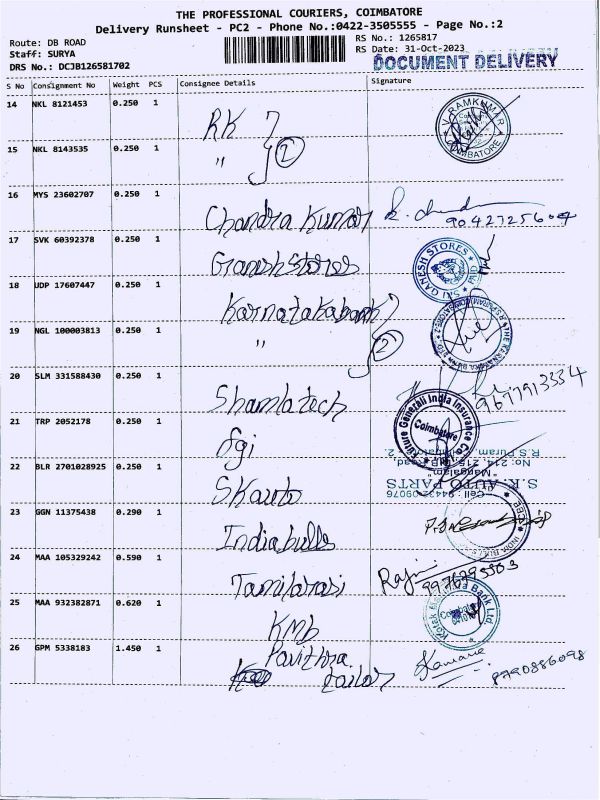 THE PROFESSIONAL COURIERS, COIMBATORE
Delivery Runsheet - PC2 - Phone No.:0422-3505555 - Page No.:2
Route: DB ROAD
Staff: SURYA
DRS No.: DCJB126581702
RS No.: 1265817
RS Date: 31-Oct-2023
DOCUMENT DELIVERY
S No Consignment No Weight PCS Consignee Details Signature
14 NKL 8121453 0.250 1 RK
V. RAMKUMAR COIMBATORE
15 NKL 8143535 0.250 1 " 2
16 MYS 23602707 0.250 1 Chandra Kumar
9042725604
17 SVK 60392378 0.250 1 Ganesh Stores
SAI GANESH STORES
18 UDP 17607447 0.250 1 Karnataka bank
19 NGL 100003813 0.250 1 " 2
20 SLM 331588430 0.250 1 Shamlatech
9677913334
21 TRP 2052178 0.250 1 fgi
Future Generali India Insurance Co
Coimbatore
22 BLR 2701028925 0.250 1 SKauto
S.K. AUTO PARTS
"Mangalam"
No: 214, 215, DB Road,
R.S Puram, Coimbatore - 2.
Cell : 94432-09076
23 GGN 11375438 0.290 1 Indiabulls
24 MAA 105329242 0.590 1 Tamilarasi
Raji
25 MAA 932382871 0.620 1 KMB
Kotak Mahindra Bank Ltd
26 GPM 5338183 1.450 1 Pavithra
tailor
8790886098